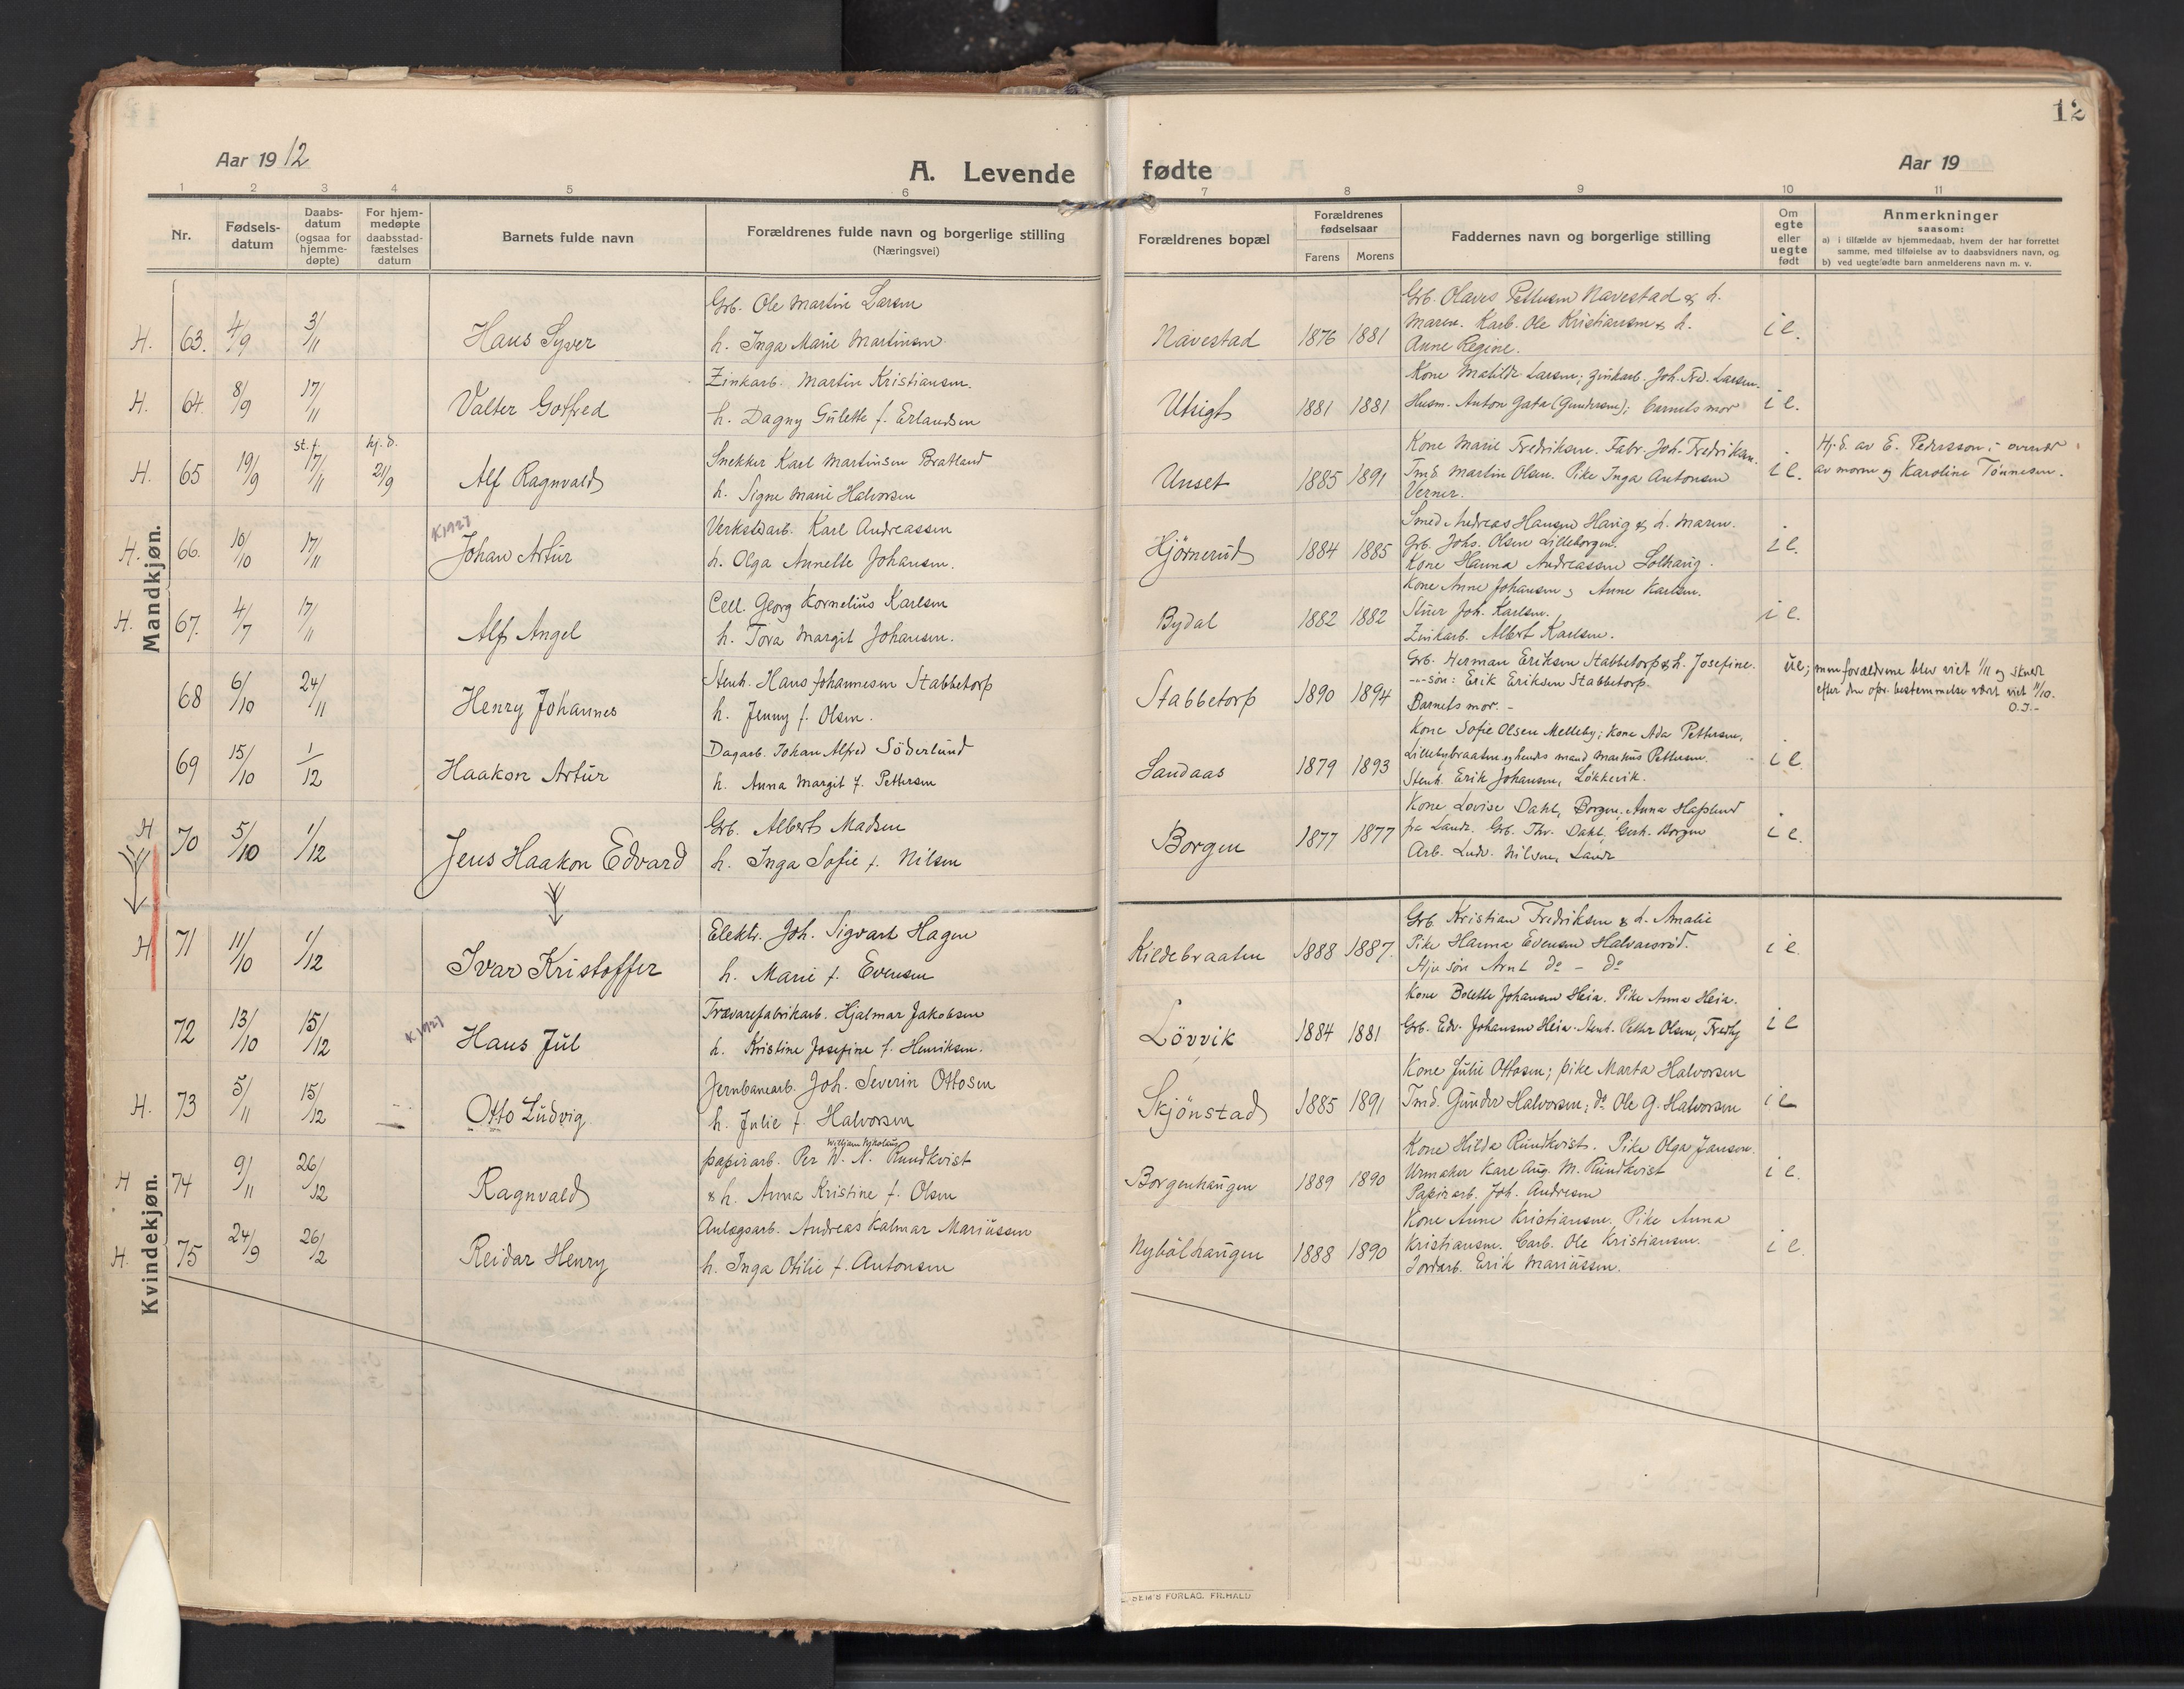 12
Aar 1912
A. Levende fødte
Aar 19
1 2 3 4 5 6 7 8 9 10 11
Nr.
Fødsels-
datum
Daabs-
datum
(ogsaa for
hjemme-
døpte)
For hjem-
medøpte
daabsstad-
fæstelses
datum
Barnets fulde navn
Forældrenes fulde navn og borgerlige stilling
(Næringsvei)
Forældrenes bopæl
Forældrenes
fødselsaar
Farens Morens
Faddernes navn og borgerlige stilling
Om
egte
eller
uegte
født
Anmerkninger
saasom:
a) i tilfælde av hjemmedaab, hvem der har forrettet
samme, med tilføielse av to daabsvidners navn, og
b) ved uegtefødte barn anmelderens navn m. v.
Mandkjøn.
Kvindekjøn.
H. 63. 4/9 3/11 Hans Syver
Grb. Ole Martin Larsen
h. Inga Marie Martinsen
Navestad 1876 1881
Grb. Olaves Pettersen Navestad & h.
Maren. Karb. Ole Kristiansen & h.
Anne Regine.
i e.
H. 64. 8/9 17/11 Valter Gotfred
Zinkarb. Martin Kristiansen.
h. Dagny Gulette f. Erlandsen
Utsigt 1881 1881
Kone Matilde Larsen; zinkarb. Joh. Fred. Larsen.
Husm. Anton Gata (Gundersen); barnets mor
i e.
H. 65 19/9 st. f. 17/11 hj. d. 21/9 Alf Ragnvald
Snekker Karl Martinsen Bratland
h. Signe Marie Halvorsen
Unset 1885 1891
Kone Marie Fredriksen. Fabr. Joh. Fredriksen.
Tmd. Martin Olsen. Pike Inga Antonsen
Verner.
i e.
Hj. d. av E. Pedersson; overvær
av moren og Karoline Tønnesen.
H. 66. 10/10 17/11 K 1927 Johan Artur
Verkstdarb. Karl Andreassen
h. Olga Annette Johansen.
Hjørnerud 1884 1885
Smed Andreas Hansen Havig & h. Maren.
Grb. Johs. Olsen Lilleborgen.
Kone Hanna Andreassen Solhavig.
i e.
H. 67. 4/7 17/11 Alf Angel
Cell. Georg Kornelius Karlsen
h. Tora Margit Johansen.
Bydal 1882 1882
Kone Anne Johansen, Anne Karlsen.
Stuer Joh. Karlsen.
Zinkarb. Albert Karlsen.
i e.
68 6/10 24/11 Henry Johannes
Stenh. Hans Johannesen Stabbetorp
h. Jenny f. Olsen.
Stabbetorp 1890 1894
Grb. Herman Eriksen Stabbetorp & h. Josefine.
-"- søn: Erik Eriksen Stabbetorp.
Barnets mor. -
ue; men forældrene blev viet 1/11 og skulde
efter den opr. bestemmelse vært viet 11/10.
O.J.-
69 15/10 1/12 Haakon Artur
Dagarb. Johan Alfred Söderlund
h. Anna Margit f. Pettersen
Sandaas 1879 1893
Kone Sofie Olsen Melleby; Kone Ada Pettersen,
Lillebybraaten og hendes mand Markus Pettersen.
Stenh. Erik Johansen, Løkkevik.
i e
H 70 5/10 1/12 Jens Haakon Edvard
Grb. Albert Madsen
h. Inga Sofie f. Nilsen
Borgen 1877 1877
Kone Lovise Dahl, Borgen; Anna Hafslund
fra Lande. Grb. Thv. Dahl, Gerh. Borgen
Arb. Ludv. Nilsen, Lande
i e.
H 71 11/10 1/12 Ivar Kristoffer
Elektr. Joh. Sigvart Hagen
h. Marie f. Evensen
Kildebraaten 1888 1887.
Grb. Kristian Fredriksen & h. Amalie
Pike Hanna Evensen Halvarsrød.
Hj. søn Arnt do - do
i e.
72 13/10 15/12 K 1927 Hans Jul
Trævarefabrikarb. Hjalmar Jakobsen
h. Kristine Josefine f. Henriksen.
Lövvik 1884 1881
Kone Bolette Johansen Heia. Pike Anna Heia.
Grb. Edv. Johansen Heia. Stenh. Petter Olsen, Fredly
i e
H. 73 5/11 15/12 Otto Ludvig
Jernbanearb. Joh. Severin Ottosen
h. Julie f. Halvorsen
Skjönstad 1885 1891
Kone Julie Ottosen; pike Marta Halvorsen
Tmd. Gunder Halvorsen; do Ole G. Halvorsen
i e
H 74 9/11 26/12 Ragnvald
William Nikolaus
papirarb. Per W. N. Rundkvist
& h. Anna Kristine f. Olsen
Borgenhaugen 1889 1890
Kone Hilda Rundkvist. Pike Olga Janson.
Urmaker Karl Aug. M. Rundkvist
Papirarb. Joh. Andresen
i e.
H. 75 24/9 26/12 Reidar Henry
Anlægsarb. Andreas Kalmar Mariussen
h. Inga Otilie f. Antonsen
Nybölhaugen 1888 1890
Kone Anne Kristiansen, Pike Anna
Kristiansen. Carb. Ole Kristiansen.
Jordarb. Erik Mariussen.
i e.
SEM'S FORLAG. FR.HALD